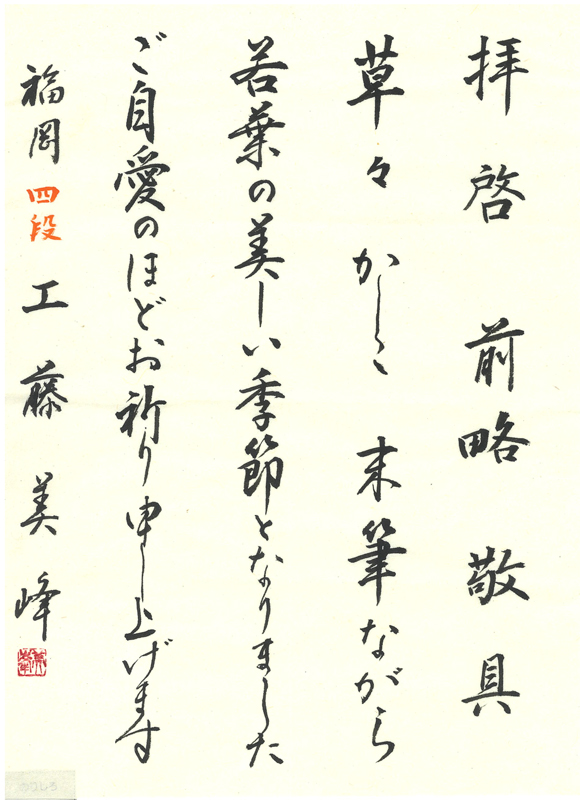 拝啓 前略 敬具
草々 かしこ 末筆ながら
若葉の美しい季節となりました
ご自愛のほどお祈り申し上げます
福岡 四段 工藤美峰